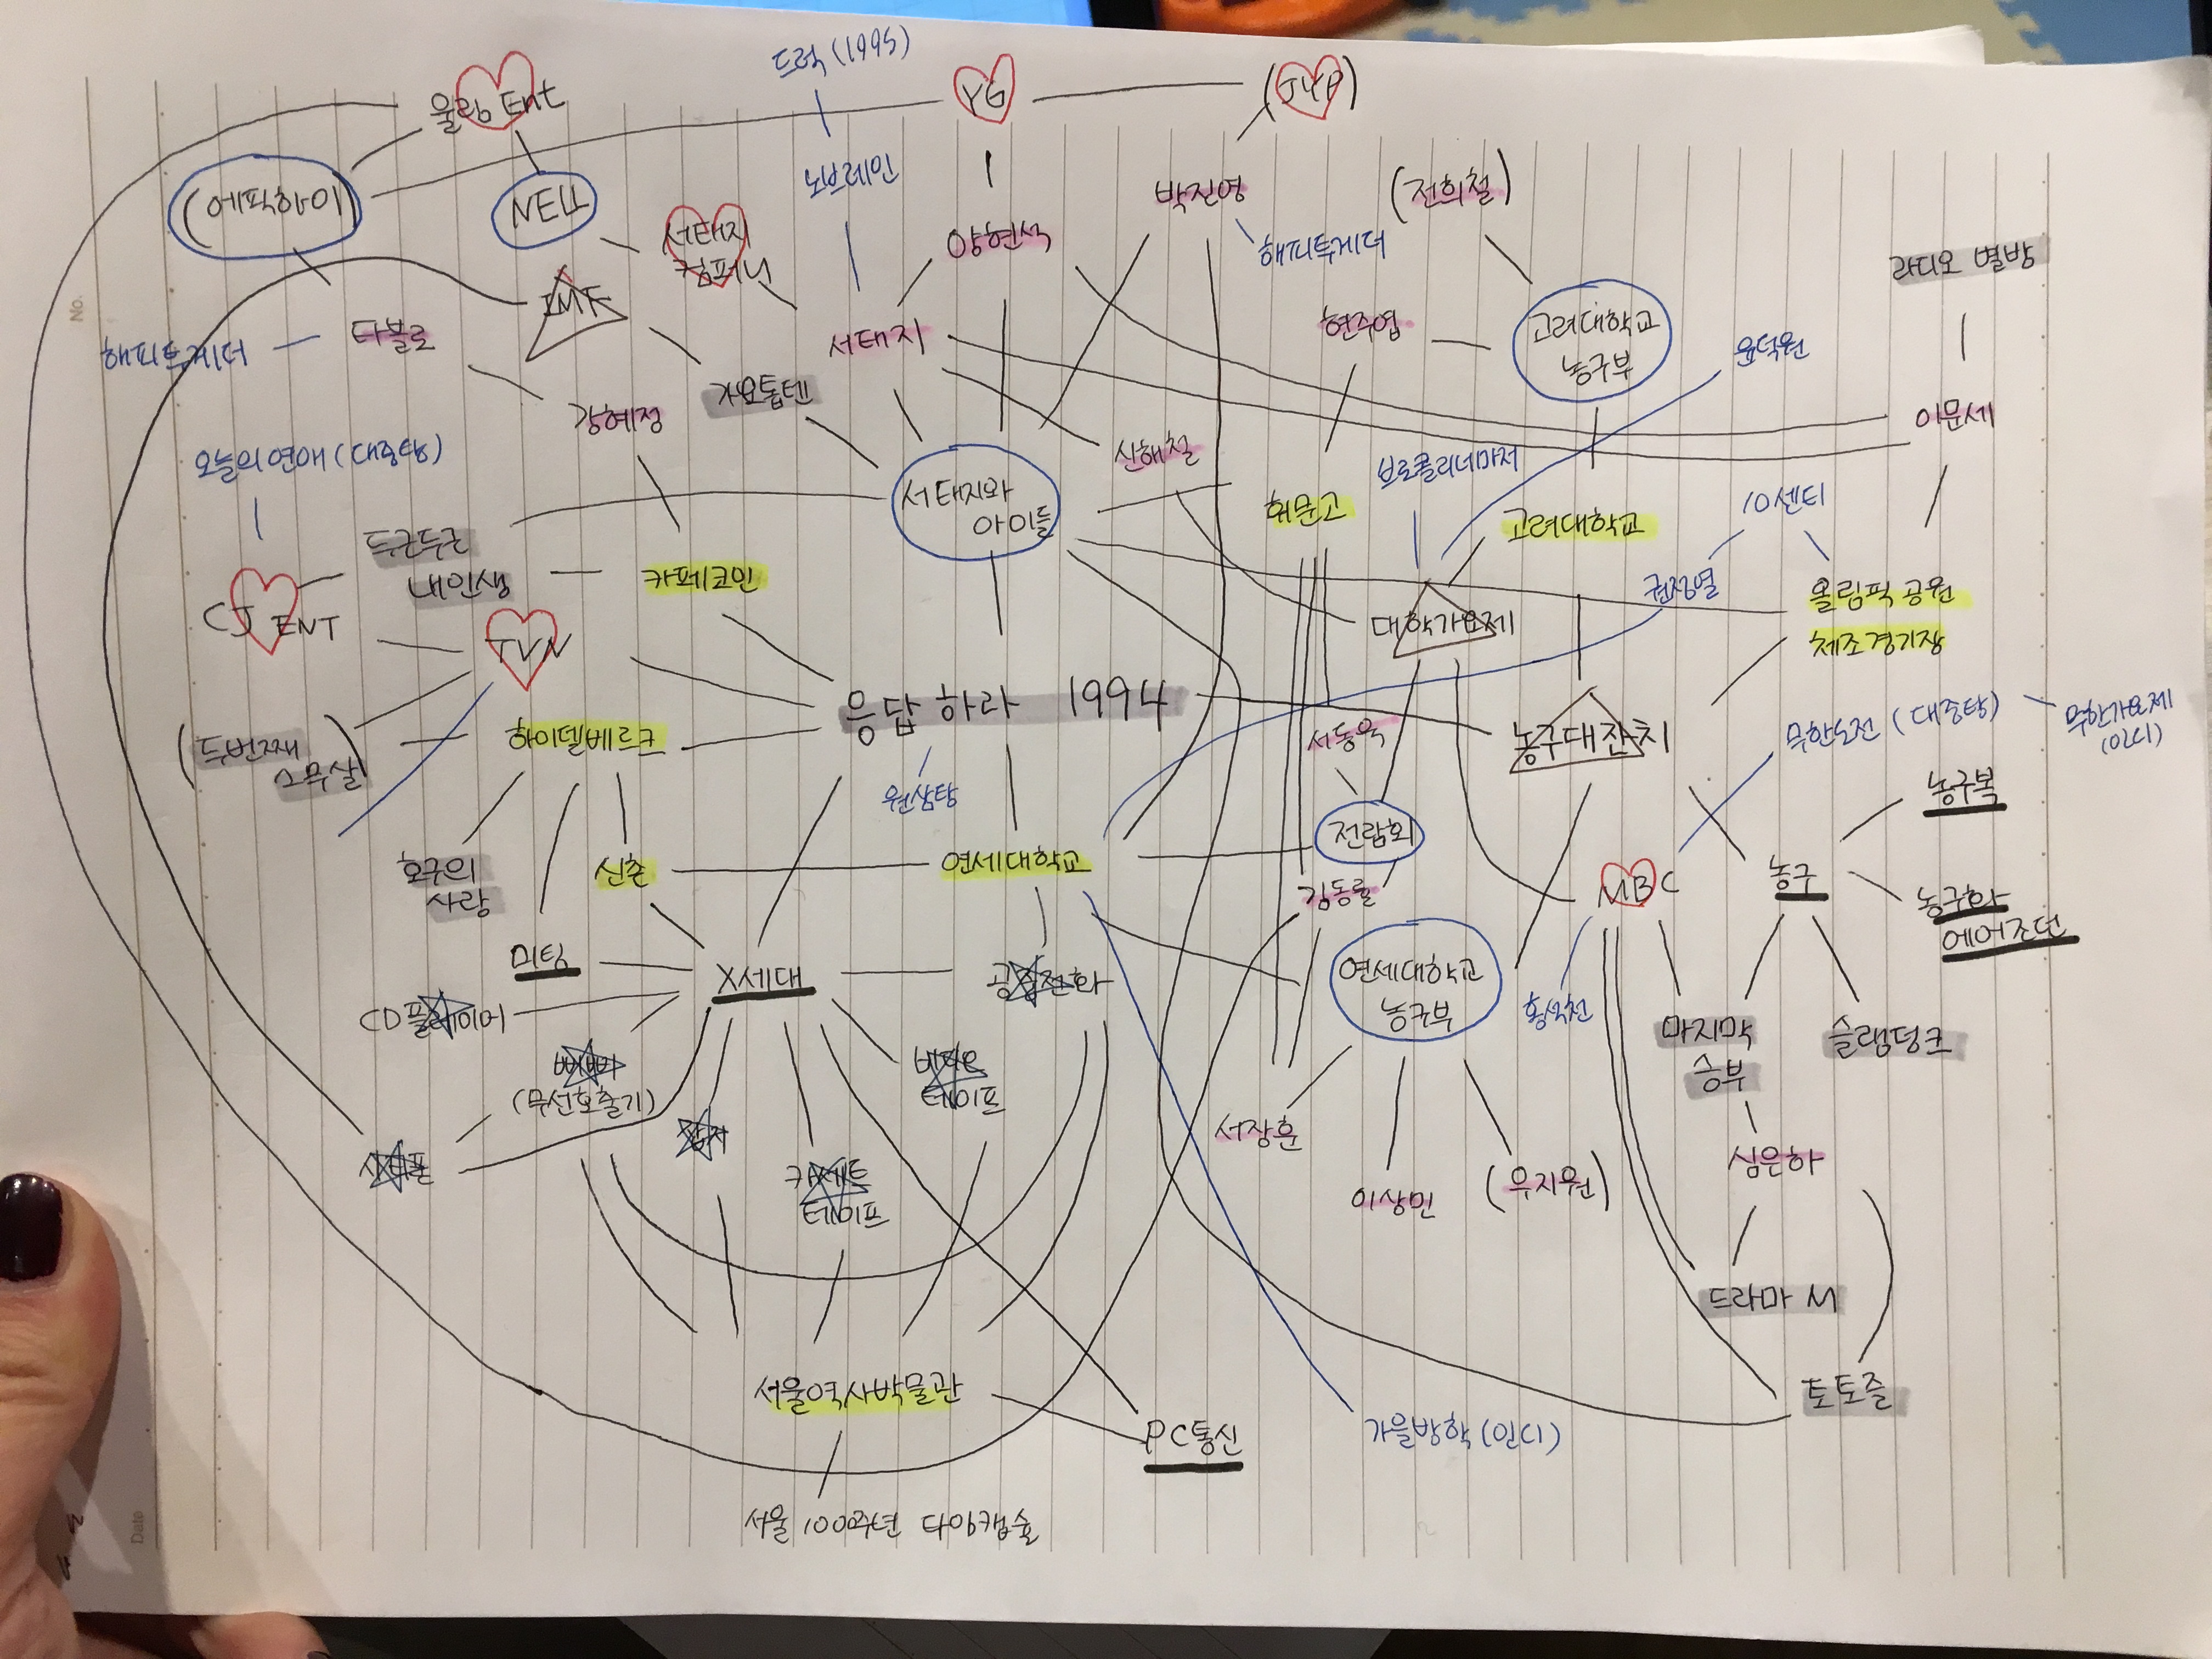 드럭 (1995)
울림 Ent
YG
(JYP)
(에픽하이)
NELL
노브레인
박진영
(전희철)
서태지
컴퍼니
양현석
해피투게더
라디오 별밤
IMF
해피투게더
타블로
서태지
현주엽
고려대학교
농구부
윤덕원
가요톱텐
강혜정
이문세
오늘의 연애 (대중탕)
신해철
브로콜리너마저
서태지와
아이들
휘문고
고려대학교
10센티
두근두근
내인생
카페코인
권정열
올림픽 공원
체조경기장
CJ ENT
TVN
대학가요제
응답하라 1994
(두번째
스무살)
하이델베르크
서동욱
농구대잔치
무한도전 (대중탕)
무한가요제
(인디)
원삼탕
농구복
호구의
사랑
신촌
연세대학교
전람회
김동률
MBC
농구
농구화
에어조던
미팅
X세대
공중전화
연세대학교
농구부
홍석천
CD플레이어
삐삐
(무선호출기)
비디오
테이프
마지막
승부
슬램덩크
시티폰
잡지
카세트
테이프
서장훈
이상민
(우지원)
심은하
드라마 M
서울역사박물관
토토즐
PC통신
가을방학 (인디)
서울 1000주년 타임캡슐
No.
Date